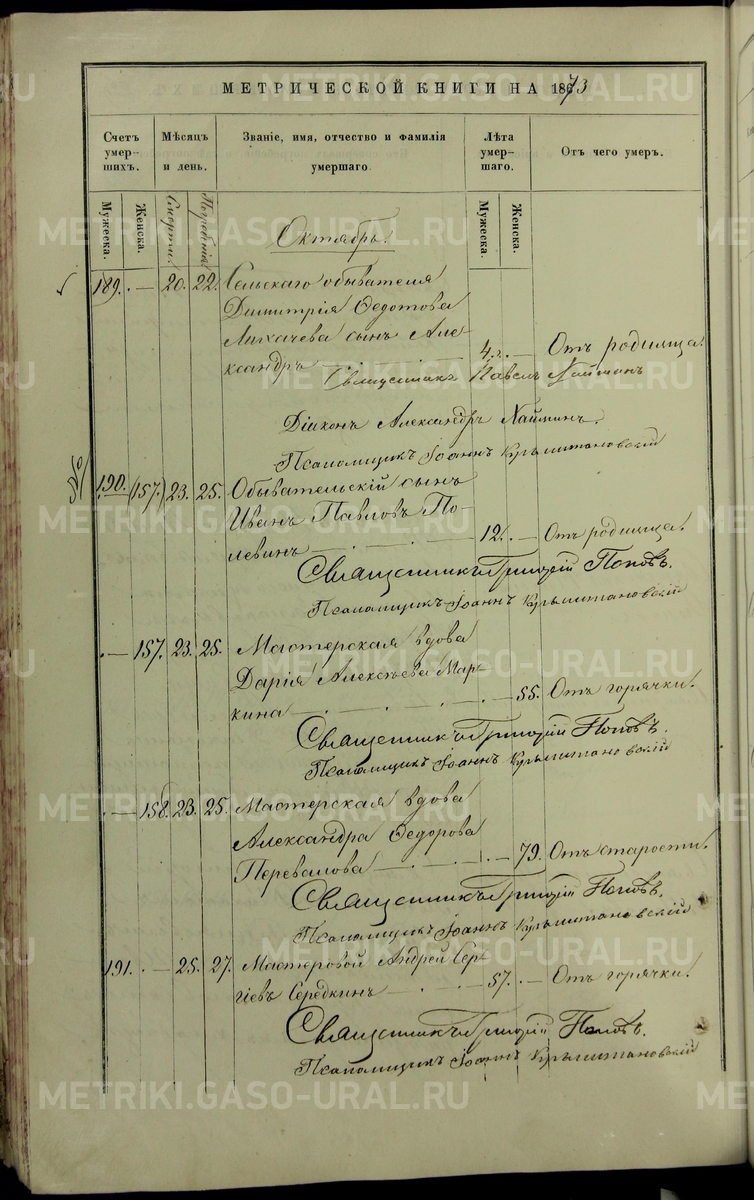 МЕТРИЧЕСКОЙ КНИГИ НА 1873
Счетъ умер-шихъ.
Мѣсяцъ и день.
Званіе, имя, отчество и фамилія умершаго.
Лѣта умер-шаго.
Отъ чего умеръ.
Мужеска.
Женска.
Смерти.
Погребенія.
Мужеска.
Женска.
Октябрь.
189. — 20. 22. Сельскаго обывателя
Димитрія Ѳедотова
Лихачева сынъ Але-
ксандръ 4. г. — Отъ родимца.
Священникъ Павелъ
Діаконъ Александръ
Псаломщикъ Іоаннъ
№
190. (157.) 23. 25. Обывательскій сынъ
Иванъ Павловъ По-
левинъ 12. — Отъ родимца.
Священникъ Григорій Поповъ.
Псаломщикъ Іоаннъ
— 157. 23. 25. Мастерская вдова
Дарія Алексѣева Мар-
кина — 55. Отъ горячки.
Священникъ Григорій Поповъ.
Псаломщикъ Іоаннъ
— 158. 23. 25. Мастерская вдова
Александра Ѳедорова
Перевалова — 79. Отъ старости.
Священникъ Григорій Поповъ.
Псаломщикъ Іоаннъ
191. — 25. 27. Мастеровой Андрей Сер-
гіевъ Середкинъ 57. — Отъ горячки.
Священникъ Григорій Поповъ.
Псаломщикъ Іоаннъ
METRIKI.GASO-URAL.RU